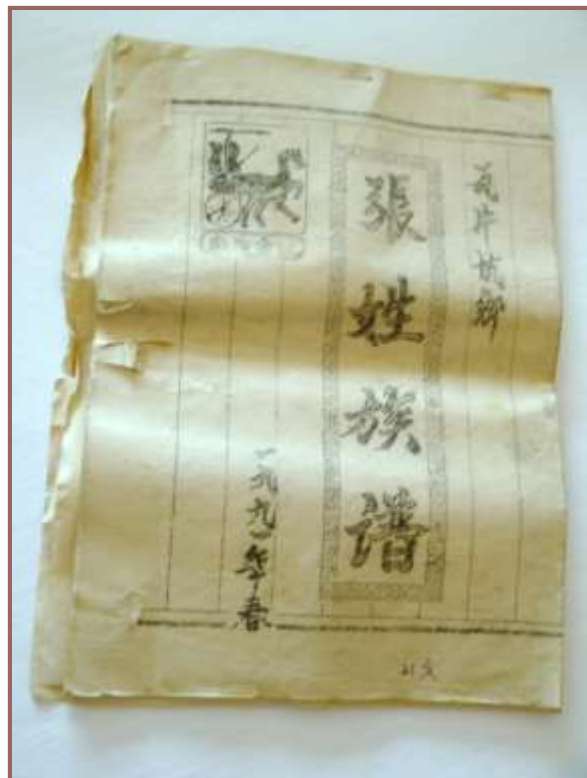 瓦片坑鄉
張姓族譜
一九九一年春